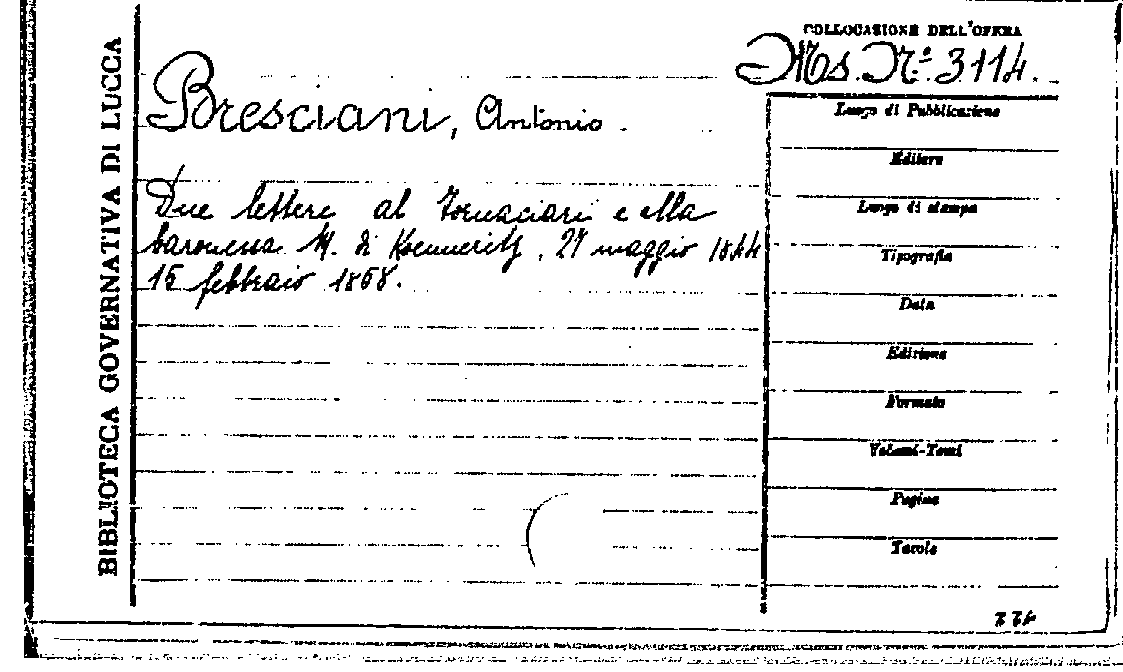 BIBLIOTECA GOVERNATIVA DI LUCCA
COLLOCAZIONE DELL'OPERA
Ms. N.º 3114.
Bresciani, Antonio.
Due lettere al Fornaciari e alla
baronessa M. di Koenneritz, 27 maggio 1844
15 febbraio 1858.
Luogo di Pubblicazione
Editore
Luogo di stampa
Tipografia
Data
Edizione
Formato
Volumi-Tomi
Pagine
Tavole